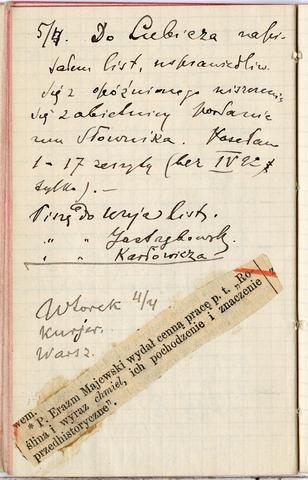 5/V. Do Lubicza napi-
sałem list, usprawiedliw.
się z opóźnionego
się z obietnicy posłania
mu Słownika. Posłałem
1–17 zeszyty (bez
tylko). —
Piszę do wuja list.
„ „
„ „ Karłowicza
Wtorek 4/V
Kurjer.
Warsz.
wem.
* P. Erazm Majewski wydał cenną pracę p. t. „Ro-
ślina i wyraz chmiel, ich pochodzenie i znaczenie
przedhistoryczne”.